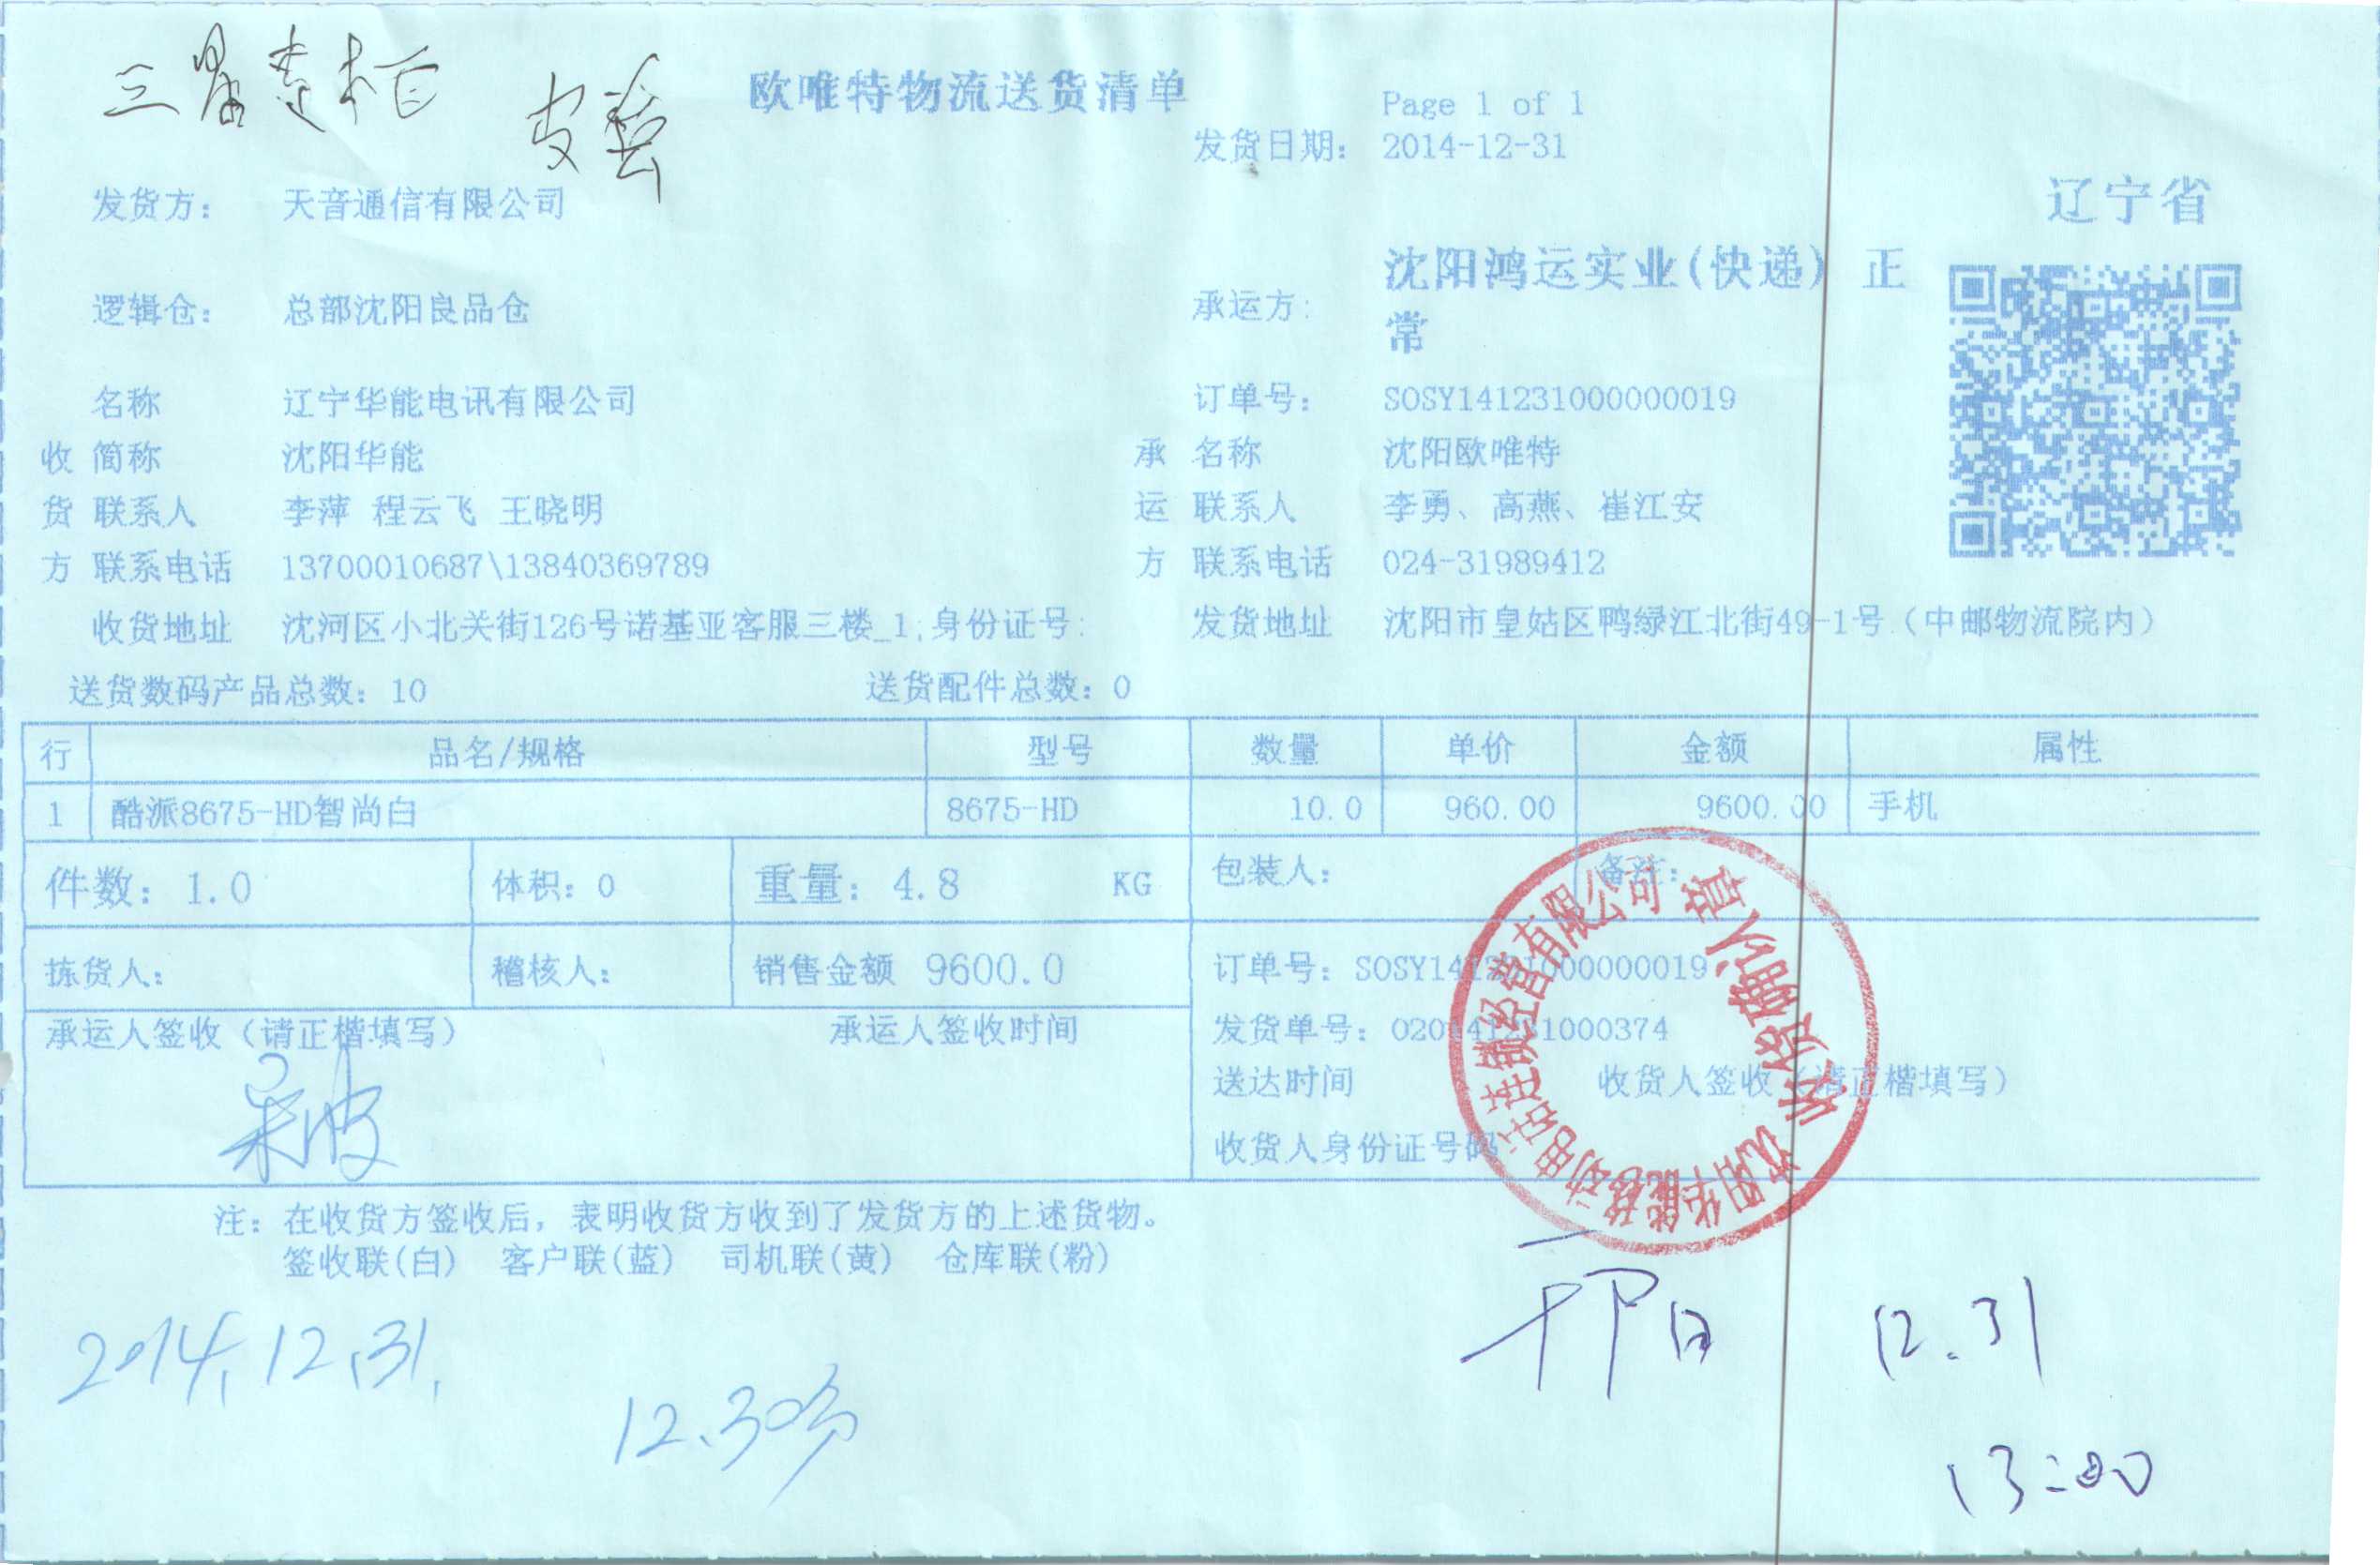 三星走柜
欧唯特物流送货清单
Page 1 of 1
发货日期: 2014-12-31
发货方: 天音通信有限公司
辽宁省
逻辑仓: 总部沈阳良品仓
承运方: 沈阳鸿运实业(快递) 正常
名称 辽宁华能电讯有限公司
订单号: SOSY141231000000019
收 简称 沈阳华能
承 名称 沈阳欧唯特
货 联系人 李萍 程云飞 王晓明
运 联系人 李勇、高燕、崔江安
方 联系电话 13700010687\13840369789
方 联系电话 024-31989412
收货地址 沈河区小北关街126号诺基亚客服三楼_1;身份证号:
发货地址 沈阳市皇姑区鸭绿江北街49-1号（中邮物流院内）
送货数码产品总数: 10 送货配件总数: 0
行 品名/规格 型号 数量 单价 金额 属性
1 酷派8675-HD智尚白 8675-HD 10.0 960.00 9600.00 手机
件数: 1.0 体积: 0 重量: 4.8 KG 包装人: 备注:
拣货人: 稽核人: 销售金额 9600.0
订单号: SOSY141231000000019
承运人签收（请正楷填写） 承运人签收时间
发货单号: 020141231000374
送达时间 收货人签收（请正楷填写）
收货人身份证号码
沈阳华能移动电话连锁经营有限公司
收货确认章
注: 在收货方签收后，表明收货方收到了发货方的上述货物。
签收联(白) 客户联(蓝) 司机联(黄) 仓库联(粉)
2014.12.31.
12.30
12.31
13:00